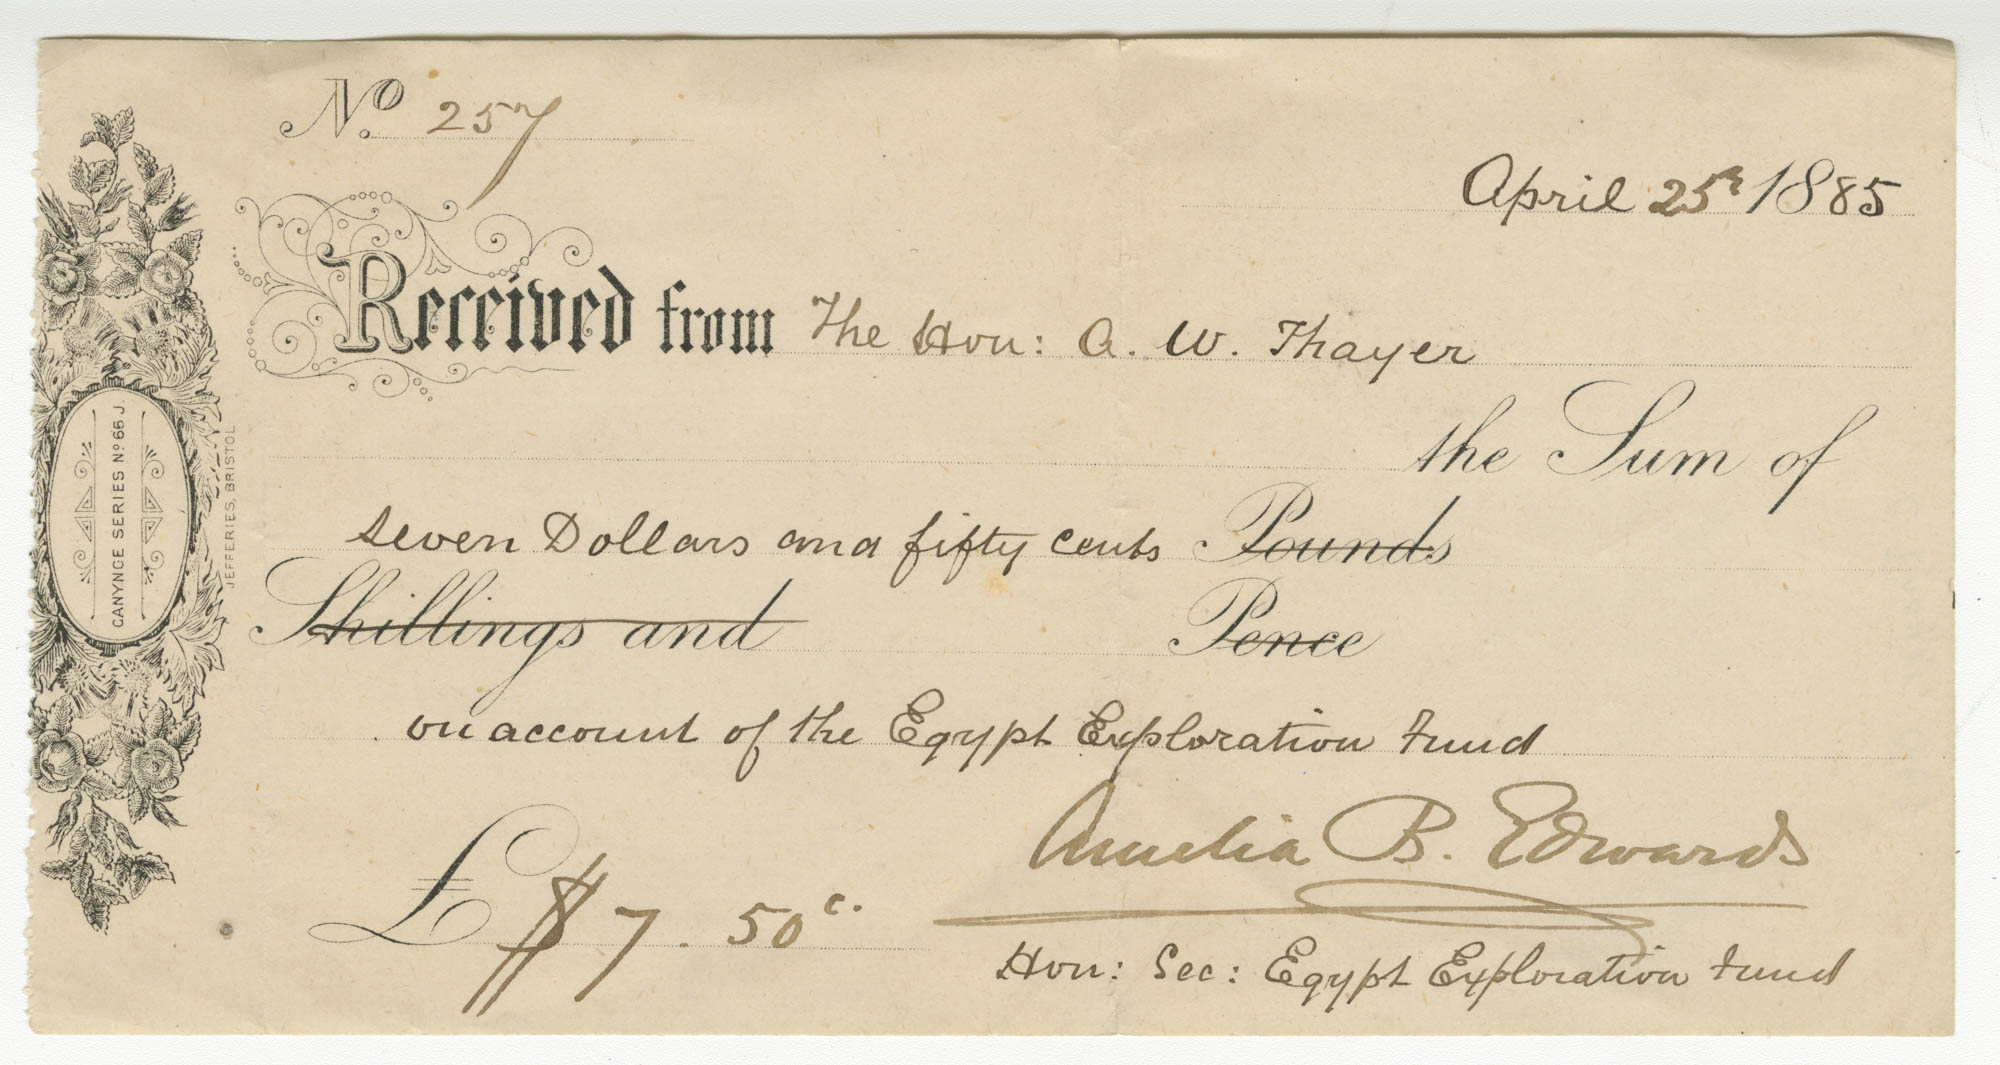 No. 257
April 25th 1885
Received from The Hon: A. W. Thayer
the Sum of
seven Dollars and fifty cents Pounds
Shillings and Pence
on account of the Egypt Exploration Fund
Amelia B. Edwards
£ $7.50c.
Hon: Sec: Egypt Exploration Fund
CANYNGE SERIES No 66 J.
JEFFERIES, BRISTOL